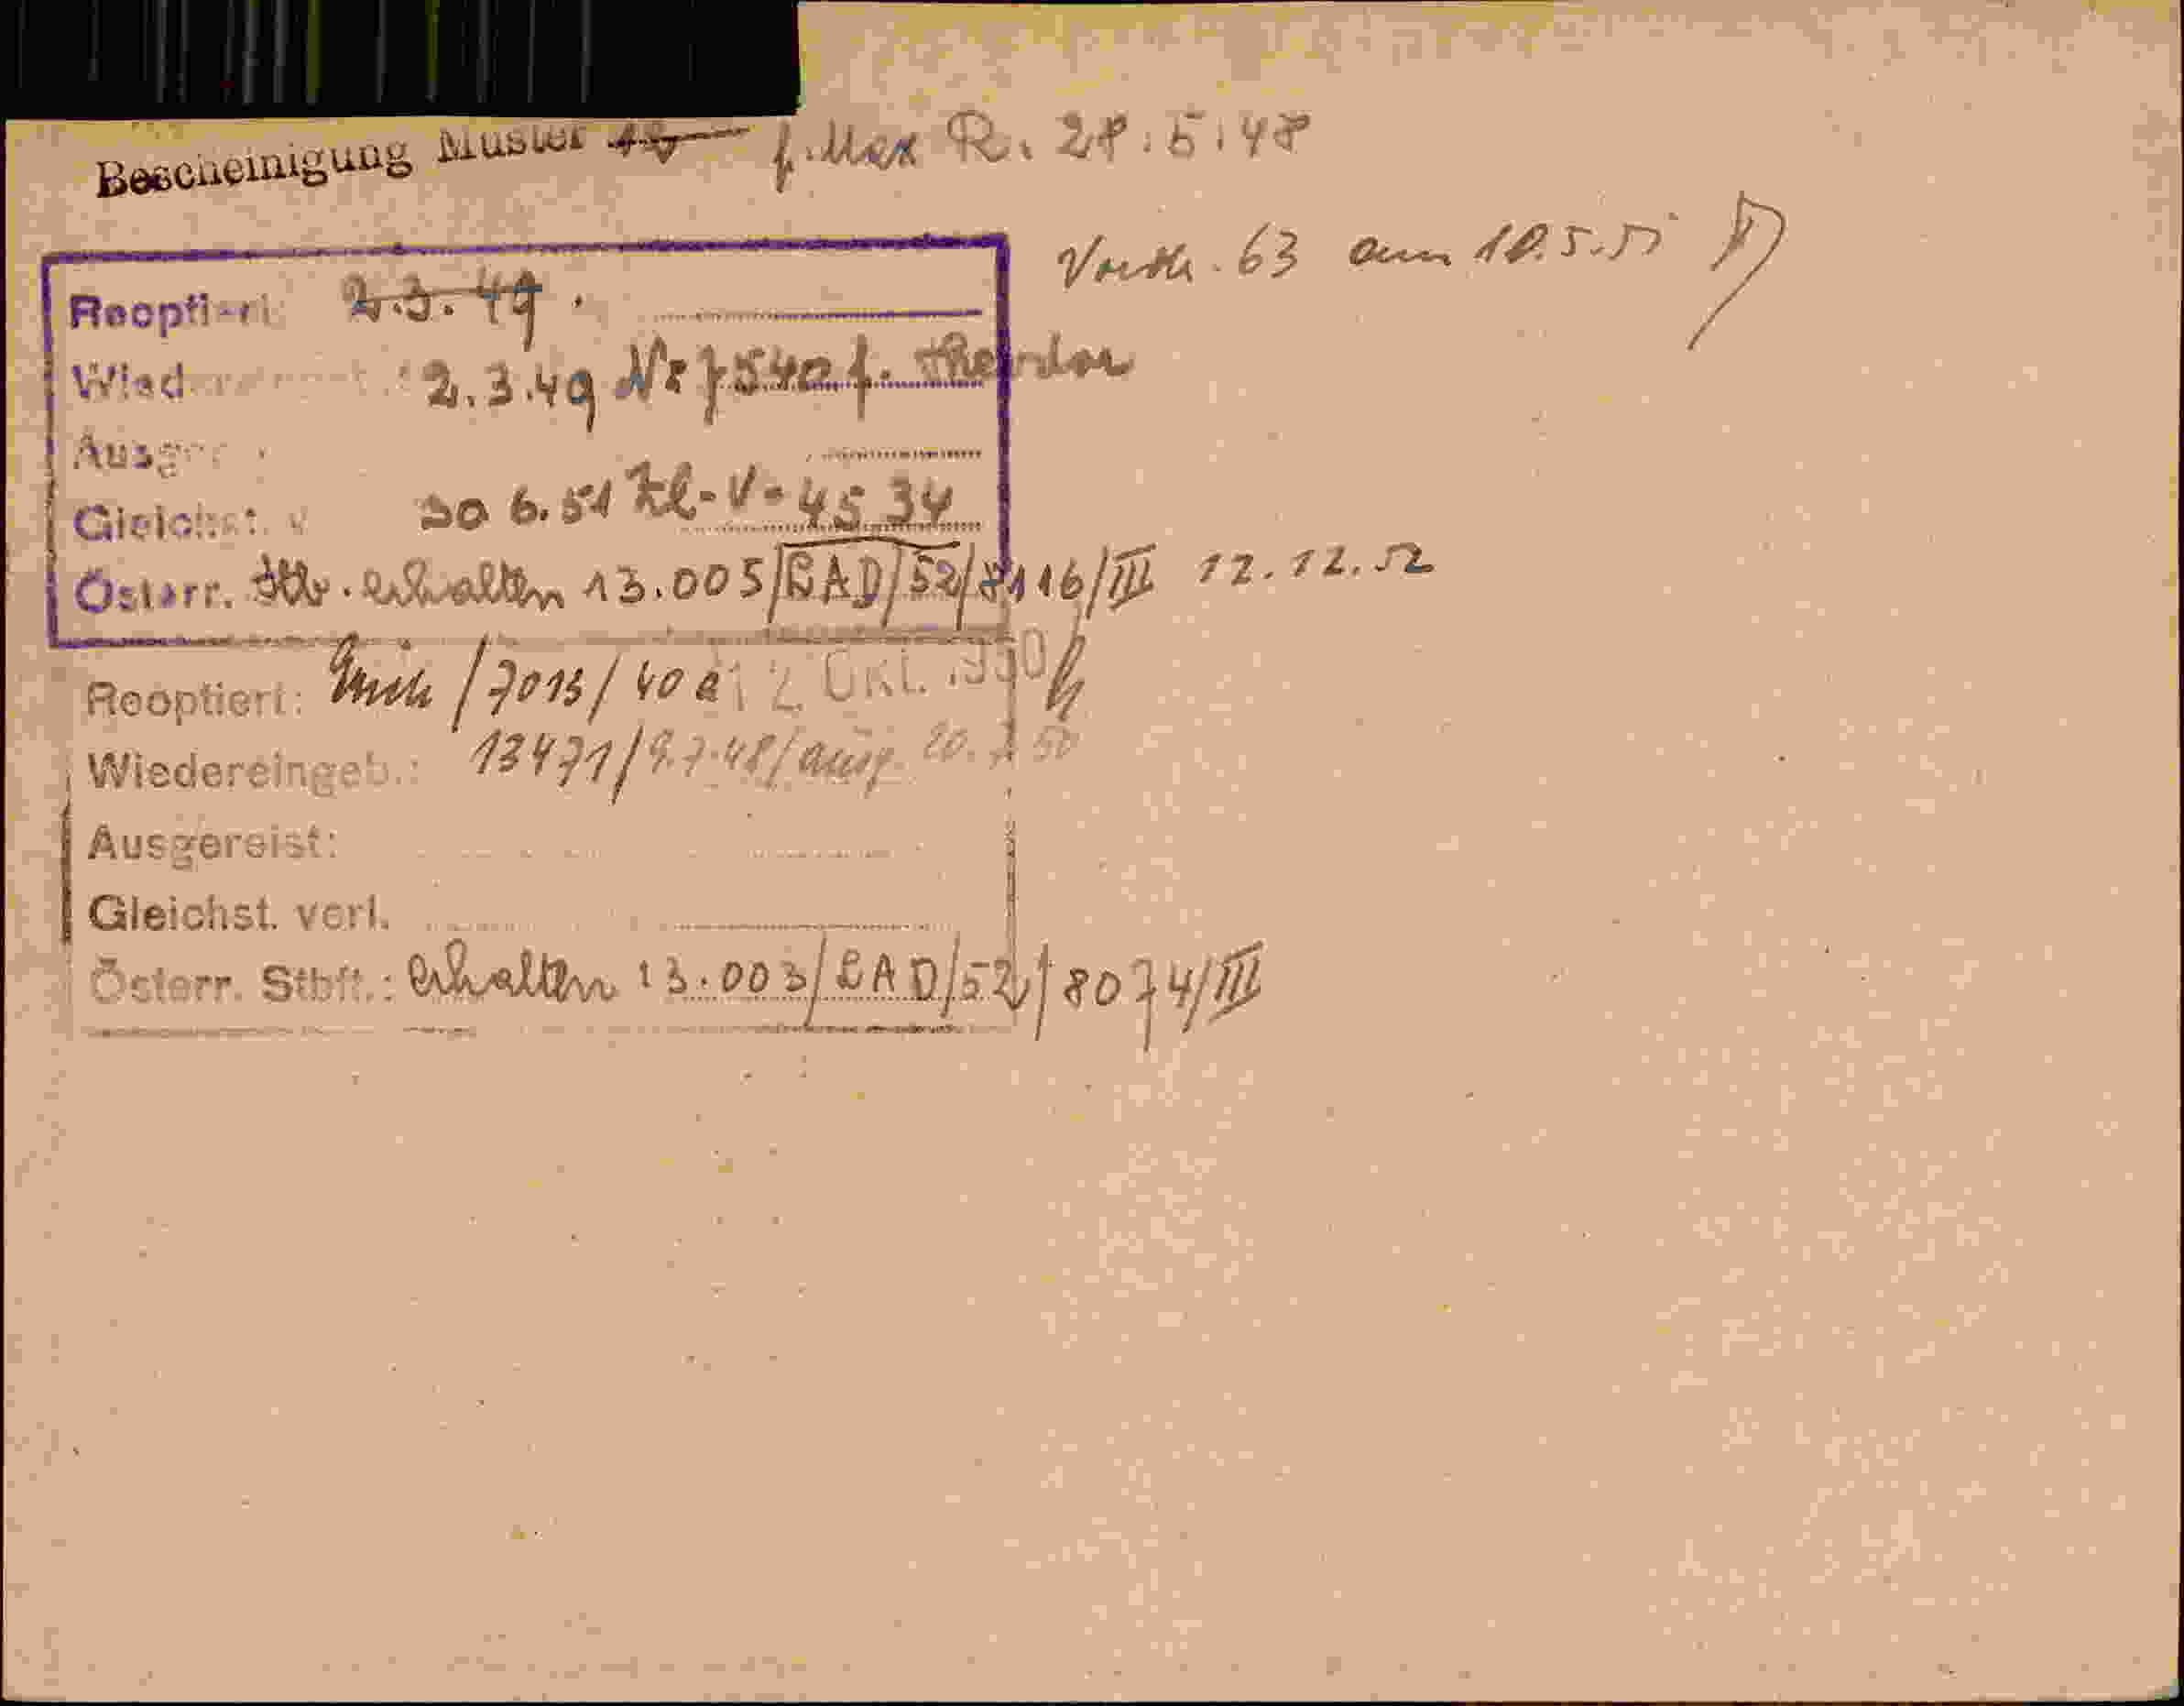 Bescheinigung Muster f. Max R. 28.5.48
63 am 10.5.55
Reoptiert: 2.3.49.
Wied 2.3.49 Nr 7540 f. Theodor
Ausger
Gleichst. v 30 6.51 Zl-V-4534
Österr. Stb. erhalten 13.005/LAD/52/8116/III 12.12.52
Reoptiert: /7013/40 a 12. Okt. 1950
Wiedereingeb.: 13471/9.7.48/ausg. 20. 7 50
Ausgereist:
Gleichst. verl.
Österr. Stbft.: erhalten 13.003/LAD/52/8074/III